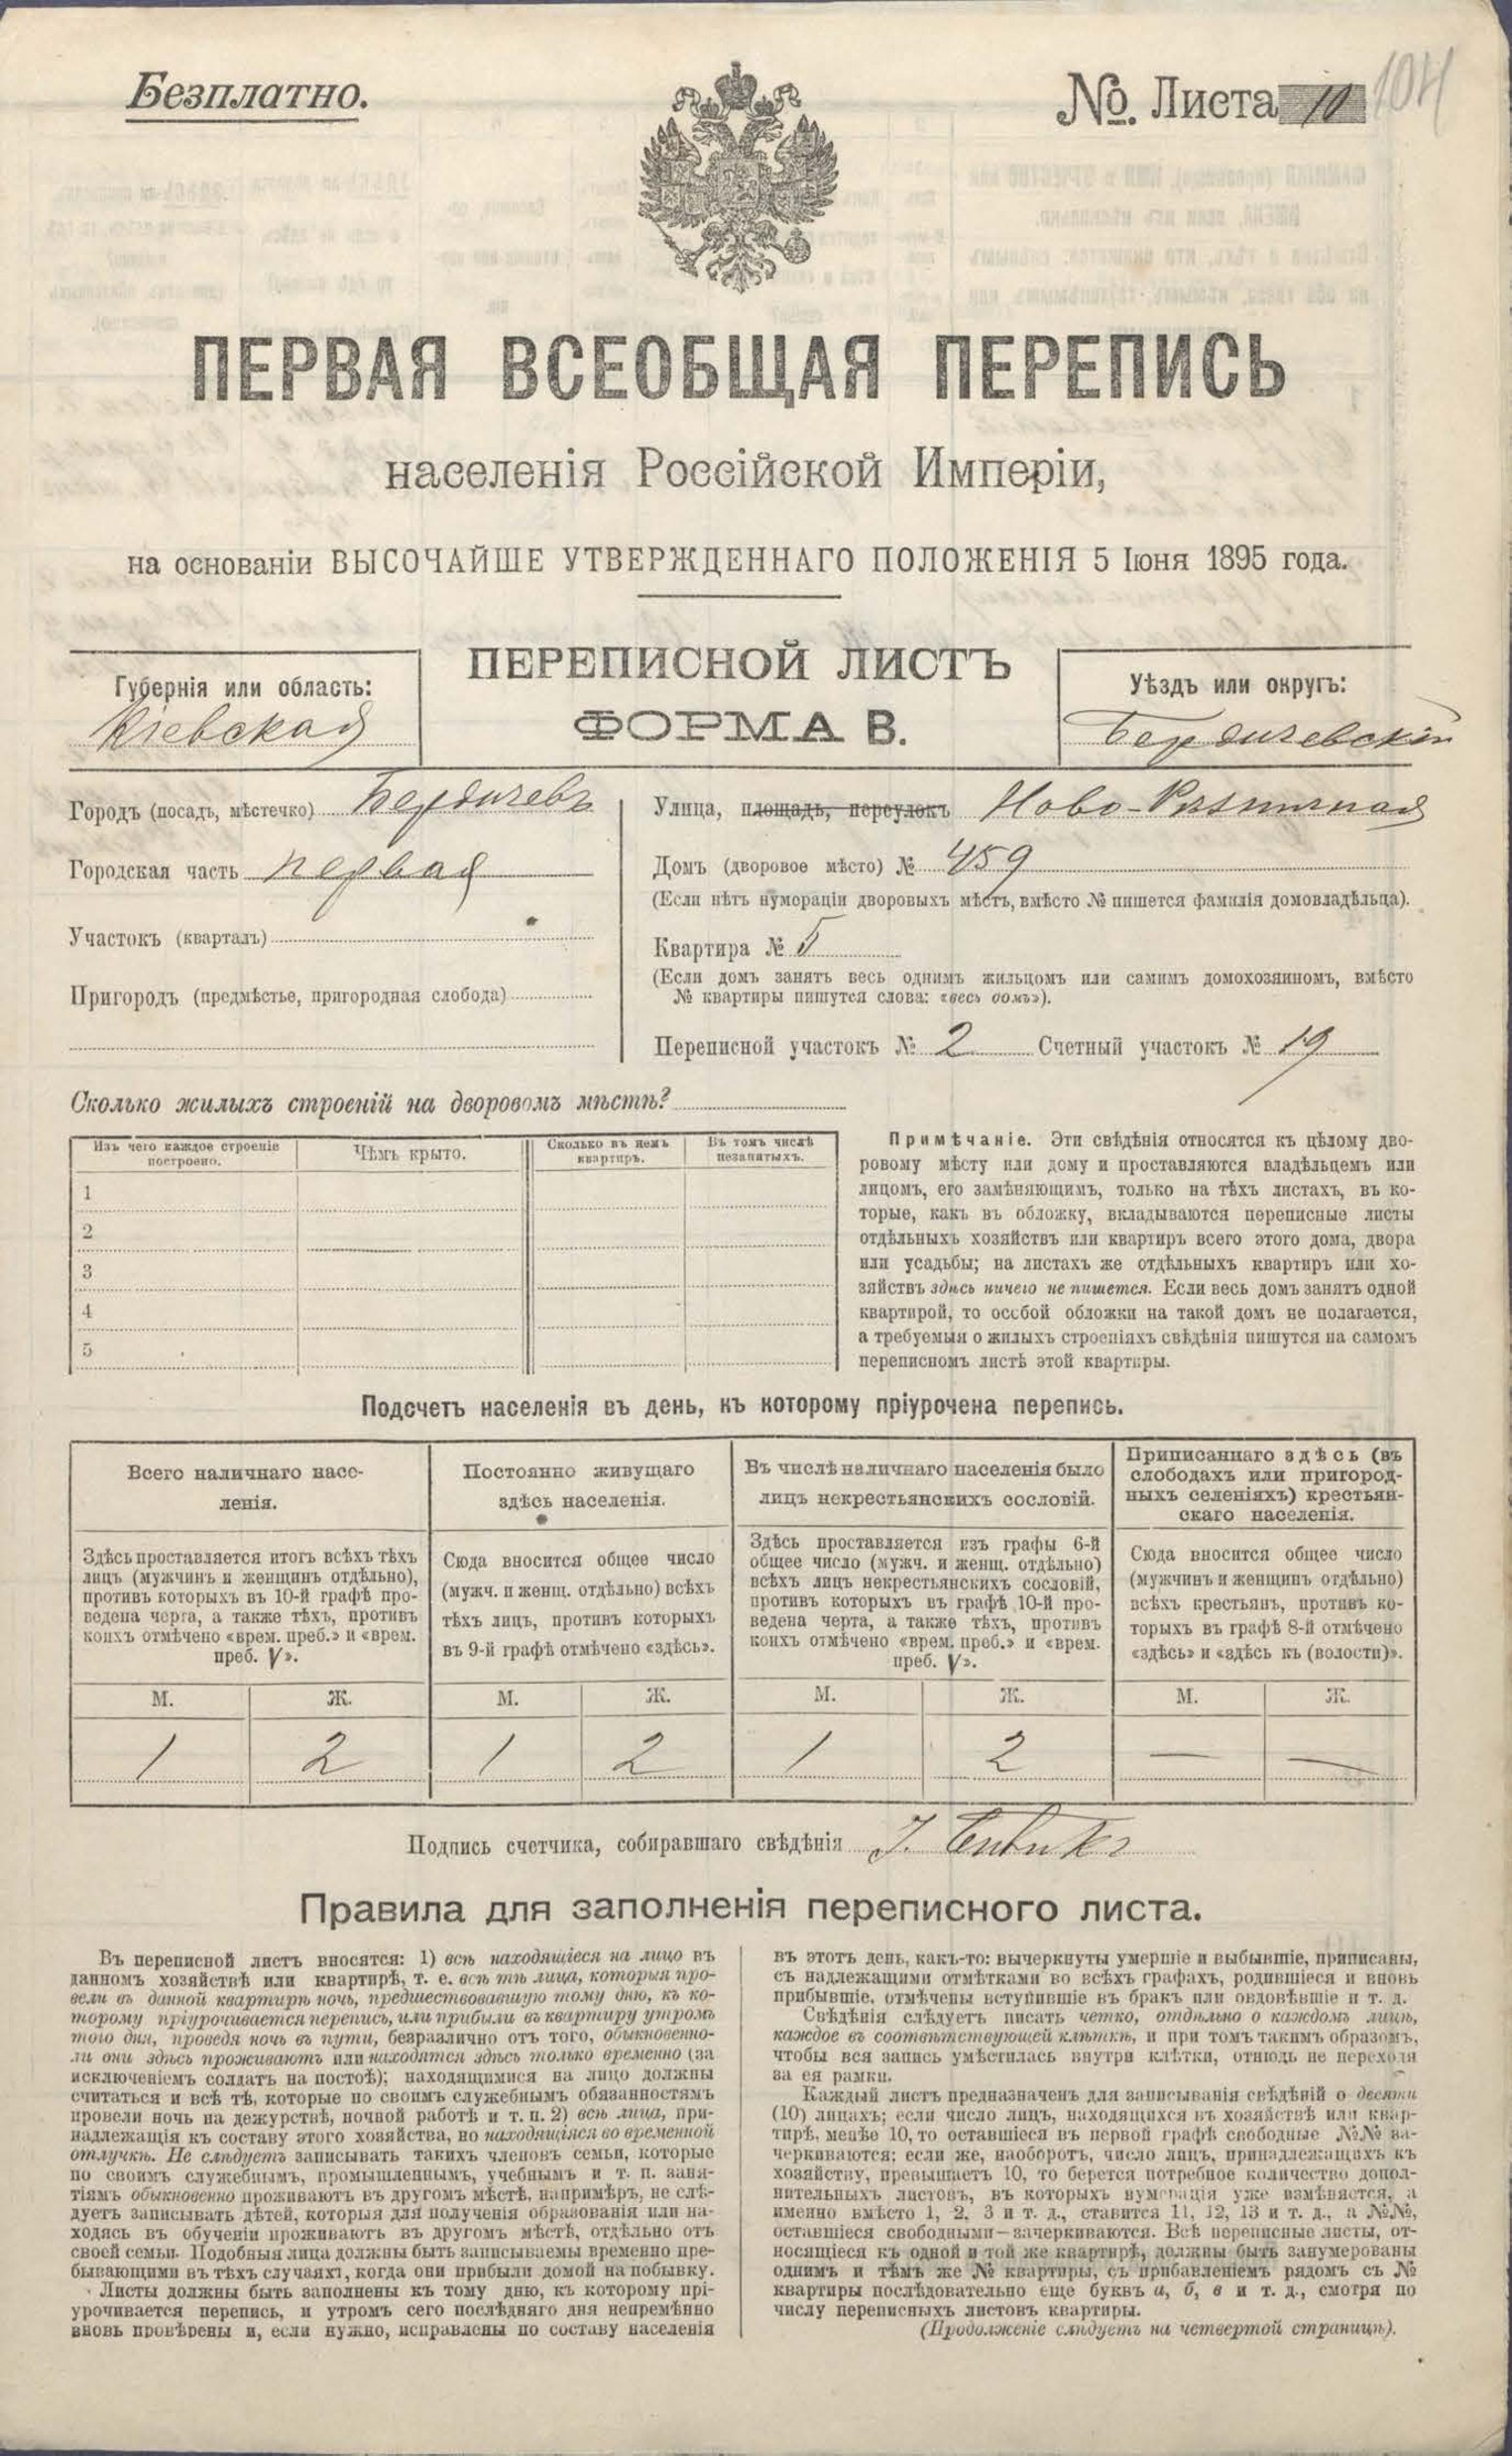 Безплатно.
№. Листа 10 104
ПЕРВАЯ ВСЕОБЩАЯ ПЕРЕПИСЬ
населенія Россійской Имперіи,
на основаніи ВЫСОЧАЙШЕ УТВЕРЖДЕННАГО ПОЛОЖЕНІЯ 5 Іюня 1895 года.
ПЕРЕПИСНОЙ ЛИСТЪ
ФОРМА В.
Губернія или область:
Кіевская
Уѣздъ или округъ:
Бердичевскій
Городъ (посадъ, мѣстечко) Бердичевъ
Городская часть первая
Участокъ (кварталъ)
Пригородъ (предмѣстье, пригородная слобода)
Улица, площадь, переулокъ Ново-
Домъ (дворовое мѣсто) № 459
(Если нѣтъ нумераціи дворовыхъ мѣстъ, вмѣсто № пишется фамилія домовладѣльца).
Квартира № 5
(Если домъ занятъ весь однимъ жильцомъ или самимъ домохозяиномъ, вмѣсто
№ квартиры пишутся слова: «весь домъ»).
Переписной участокъ № 2 Счетный участокъ № 19
Сколько жилыхъ строеній на дворовомъ мѣстѣ?
Изъ чего каждое строеніе
построено.
Чѣмъ крыто.
Сколько въ немъ
квартиръ.
Въ томъ числѣ
незанятыхъ.
1
2
3
4
5
Примѣчаніе. Эти свѣдѣнія относятся къ цѣлому дво-
ровому мѣсту или дому и проставляются владѣльцемъ или
лицомъ, его замѣняющимъ, только на тѣхъ листахъ, въ ко-
торые, какъ въ обложку, вкладываются переписные листы
отдѣльныхъ хозяйствъ или квартиръ всего этого дома, двора
или усадьбы; на листахъ же отдѣльныхъ квартиръ или хо-
зяйствъ здѣсь ничего не пишется. Если весь домъ занятъ одной
квартирой, то особой обложки на такой домъ не полагается,
а требуемыя о жилыхъ строеніяхъ свѣдѣнія пишутся на самомъ
переписномъ листѣ этой квартиры.
Подсчетъ населенія въ день, къ которому пріурочена перепись.
Всего наличнаго насе-
ленія.
Здѣсь проставляется итогъ всѣхъ тѣхъ
лицъ (мужчинъ и женщинъ отдѣльно),
противъ которыхъ въ 10-й графѣ про-
ведена черта, а также тѣхъ, противъ
коихъ отмѣчено «врем. преб.» и «врем.
преб. V».
Постоянно живущаго
здѣсь населенія.
Сюда вносится общее число
(мужч. и женщ. отдѣльно) всѣхъ
тѣхъ лицъ, противъ которыхъ
въ 9-й графѣ отмѣчено «здѣсь».
Въ числѣ наличнаго населенія было
лицъ некрестьянскихъ сословій.
Здѣсь проставляется изъ графы 6-й
общее число (мужч. и женщ. отдѣльно)
всѣхъ лицъ некрестьянскихъ сословій,
противъ которыхъ въ графѣ 10-й про-
ведена черта, а также тѣхъ, противъ
коихъ отмѣчено «врем. преб.» и «врем.
преб. V».
Приписаннаго здѣсь (въ
слободахъ или пригород-
ныхъ селеніяхъ) крестьян-
скаго населенія.
Сюда вносится общее число
(мужчинъ и женщинъ отдѣльно)
всѣхъ крестьянъ, противъ ко-
торыхъ въ графѣ 8-й отмѣчено
«здѣсь» и «здѣсь къ (волости)».
М. Ж. М. Ж. М. Ж. М. Ж.
1 2 1 2 1 2 — —
Подпись счетчика, собиравшаго свѣдѣнія
Правила для заполненія переписного листа.
Въ переписной листъ вносятся: 1) всѣ находящіеся на лицо въ
данномъ хозяйствѣ или квартирѣ, т. е. всѣ тѣ лица, которыя про-
вели въ данной квартирѣ ночь, предшествовавшую тому дню, къ ко-
торому пріурочивается перепись, или прибыли въ квартиру утромъ
того дня, проведя ночь въ пути, безразлично отъ того, обыкновенно-
ли они здѣсь проживаютъ или находятся здѣсь только временно (за
исключеніемъ солдатъ на постоѣ); находящимися на лицо должны
считаться и всѣ тѣ, которые по своимъ служебнымъ обязанностямъ
провели ночь на дежурствѣ, ночной работѣ и т. п. 2) всѣ лица, при-
надлежащія къ составу этого хозяйства, но находящіяся во временной
отлучкѣ. Не слѣдуетъ записывать такихъ членовъ семьи, которые
по своимъ служебнымъ, промышленнымъ, учебнымъ и т. п. заня-
тіямъ обыкновенно проживаютъ въ другомъ мѣстѣ, напримѣръ, не слѣ-
дуетъ записывать дѣтей, которыя для полученія образованія или на-
ходясь въ обученіи проживаютъ въ другомъ мѣстѣ, отдѣльно отъ
своей семьи. Подобныя лица должны быть записываемы временно пре-
бывающими въ тѣхъ случаяхъ, когда они прибыли домой на побывку.
Листы должны быть заполнены къ тому дню, къ которому прі-
урочивается перепись, и утромъ сего послѣдняго дня непремѣнно
вновь провѣрены и, если нужно, исправлены по составу населенія
въ этотъ день, какъ-то: вычеркнуты умершіе и выбывшіе, приписаны,
съ надлежащими отмѣтками во всѣхъ графахъ, родившіеся и вновь
прибывшіе, отмѣчены вступившіе въ бракъ или овдовѣвшіе и т. д.
Свѣдѣнія слѣдуетъ писать четко, отдѣльно о каждомъ лицѣ,
каждое въ соотвѣтствующей клѣткѣ, и при томъ такимъ образомъ,
чтобы вся запись умѣстилась внутри клѣтки, отнюдь не переходя
за ея рамки.
Каждый листъ предназначенъ для записыванія свѣдѣній о десяти
(10) лицахъ; если число лицъ, находящихся въ хозяйствѣ или квар-
тирѣ, менѣе 10, то оставшіеся въ первой графѣ свободные №№ за-
черкиваются; если же, наоборотъ, число лицъ, принадлежащихъ къ
хозяйству, превышаетъ 10, то берется потребное количество допол-
нительныхъ листовъ, въ которыхъ нумерація уже измѣняется, а
именно вмѣсто 1, 2, 3 и т. д., ставится 11, 12, 13 и т. д., а №№,
оставшіеся свободными—зачеркиваются. Всѣ переписные листы, от-
носящіеся къ одной и той же квартирѣ, должны быть занумерованы
однимъ и тѣмъ же № квартиры, съ прибавленіемъ рядомъ съ №
квартиры послѣдовательно еще буквъ а, б, в и т. д., смотря по
числу переписныхъ листовъ квартиры.
(Продолженіе слѣдуетъ на четвертой страницѣ).